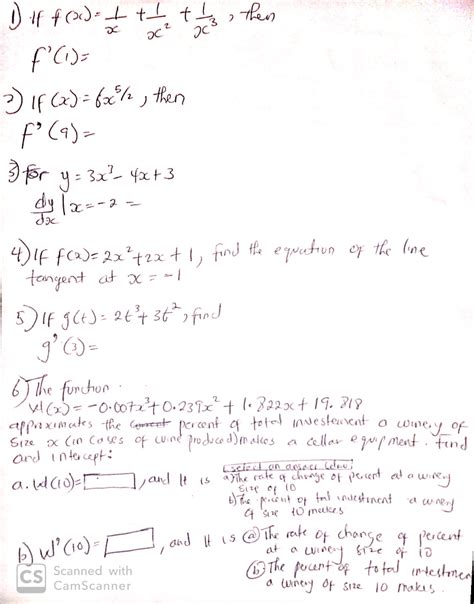 1) If f(x) = 1/x + 1/x² + 1/x³, then
f'(1) =
2) If (x) = 6x^5/2, then
f'(9) =
3) for y = 3x³ - 4x + 3
dy/dx | x = -2 =
4) If f(x) = 2x² + 2x + 1, find the equation of the line
tangent at x = -1
5) If g(t) = 2t³ + 3t², find
g'(3) =
6) The function
W(x) = -0.007x³ + 0.239x² + 1.822x + 19.818
approximates the percent of total investement a winery of
size x (in cases of wine produced) makes a cellar equipment. find
and intercept:
(select an answer below)
a. W(10) = , and It is a) The rate of change of percent at a winery
size of 10
b) The percent of total investment a winery
of size 10 makes
b) W'(10) = , and It is (a) The rate of change of percent
at a winery size of 10
(b) The percent of total investment
a winery of size 10 makes.
CS Scanned with
CamScanner